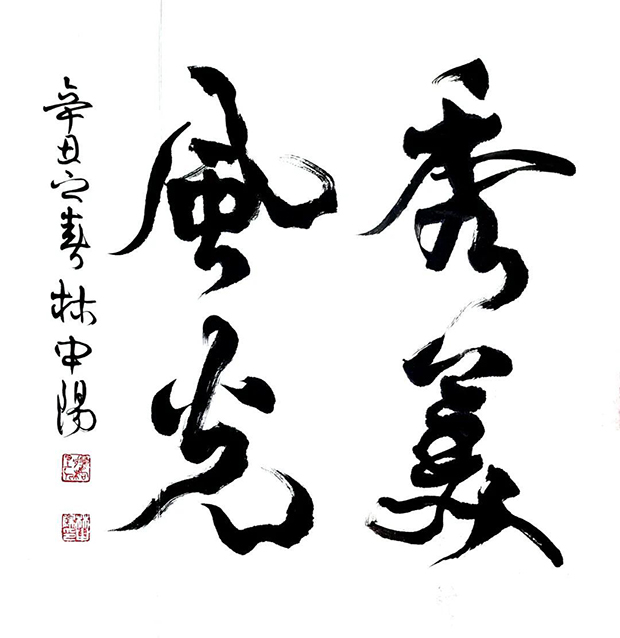 秀美
風光
辛丑之春林中陽